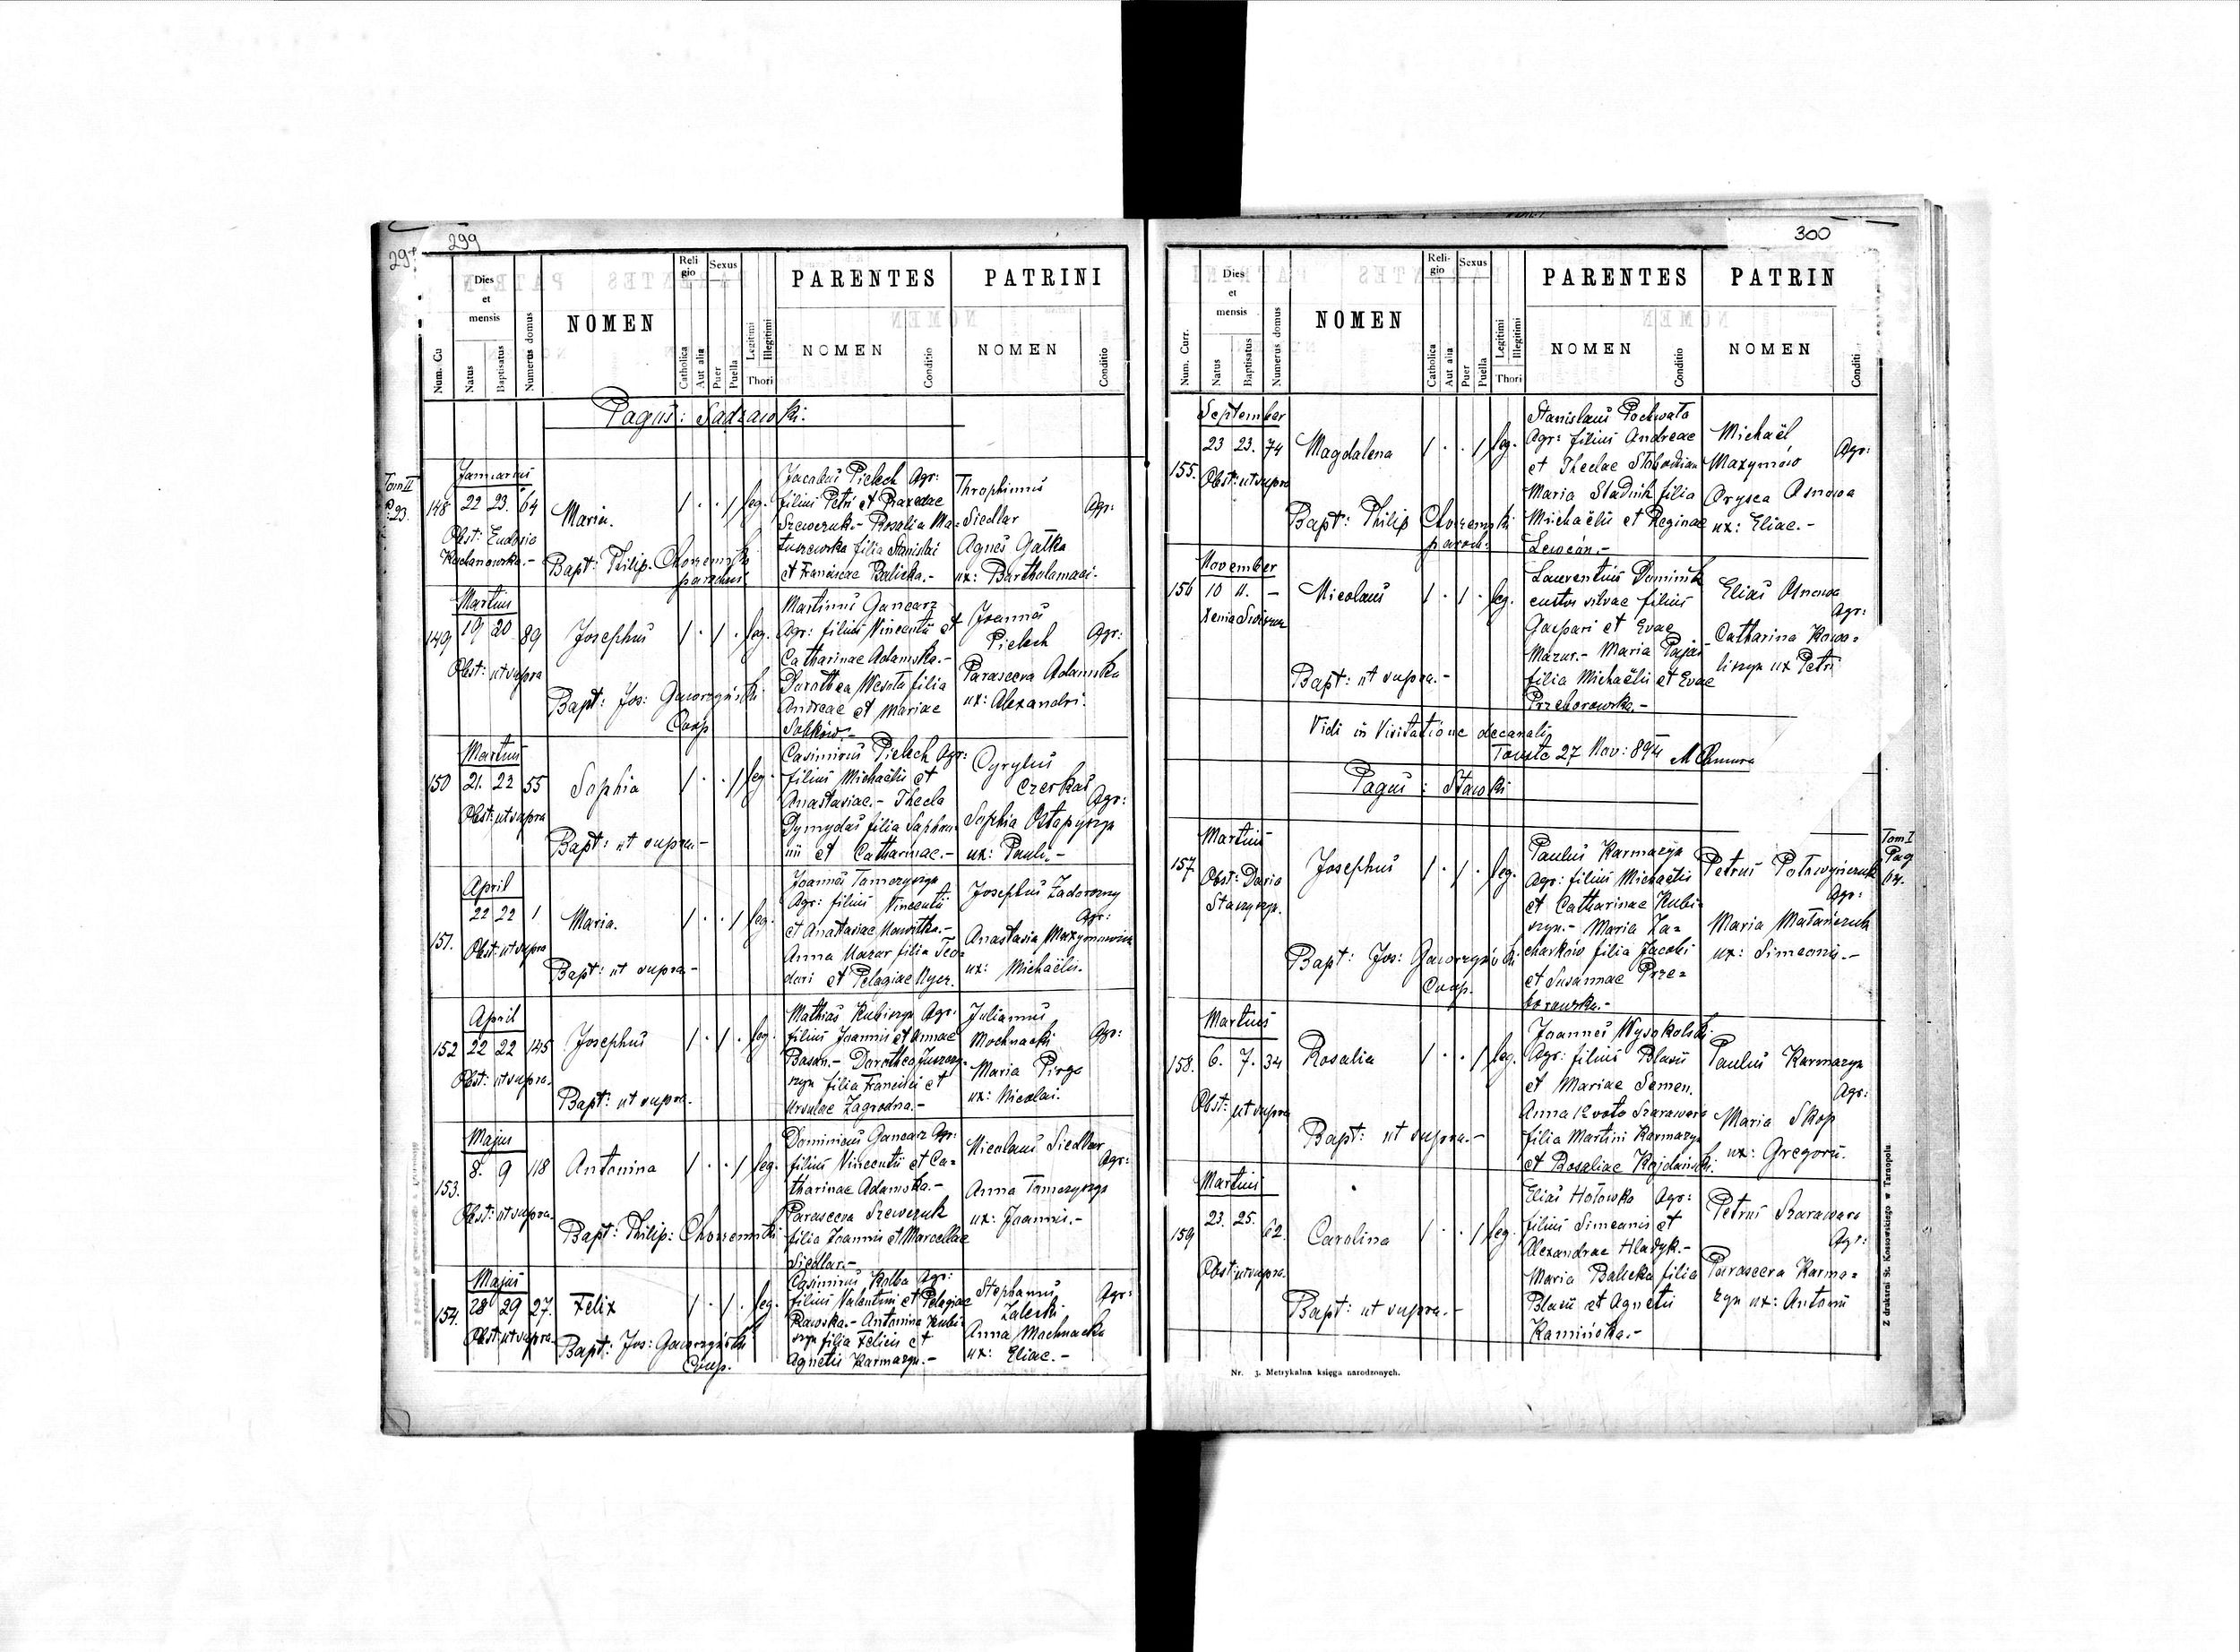 299
Num. Cu
Dies et mensis
Natus
Baptisatus
Numerus domus
NOMEN
Religio
Catholica
Aut alia
Sexus
Puer
Puella
Legitimi
Illegitimi
Thori
PARENTES
NOMEN
Conditio
PATRINI
NOMEN
Conditio
Pagus: Sadzawki:
Tom II
P: 23.
Januarius
148 22 23. 64
Maria.
leg.
Obst: Eudosia
Kochanowska.-
Bapt: Philip. Chorzemski
parochus
Jacobus Pielech Agr:
filius Petri et Praxedae
Szewczuk.- Rosalia Ma=
tuszewska filia Stanislai
et Franciscae Balicka.-
Throphimus
Siedlar
Agr:
Agnes Gałka
ux: Bartholomaei.
Martius
149 19 20 89
Josephus
leg.
Obst: ut supra
Bapt: Jos: Gaworzyński
Coop
Martinus Gancarz
Agr: filius Vincentii et
Catharinae Adamska.-
Dorothea Wesoła filia
Andreae et Mariae
Sobków.-
Joannes
Pielech
Agr:
Parasceva Adamska
ux: Alexandri.
Martius
150 21. 22 55
Sophia
leg.
Obst: ut supra
Bapt: ut supra.-
Casimirus Pielech Agr:
filius Michaëlis et
Anastasiae.- Thecla
Dymydas filia Saphro=
nii et Catharinae.-
Cyrylus
Czerkas
Agr:
Sophia Ostapyszyn
ux: Pauli.-
April
151. 22 22 1
Maria.
leg.
Obst: ut supra
Bapt: ut supra.-
Joannes Tomczyszyn
Agr: filius Vincentii
et Anastasiae Nowitka.-
Anna Mazur filia Teo=
dori et Pelagiae Nycz.
Josephus Zadorozny
Agr:
Anastasia Maxymowicz
ux: Michaëlis.
April
152 22 22 145
Josephus
leg.
Obst: ut supra.
Bapt: ut supra.
Mathias Kubiszyn Agr.
filius Joannis et Annae
filia Francisci et
Ursulae Zagrodna.-
Julianus
Mochnacki
Agr:
Maria Pirgo
ux: Nicolai.
Majus
153. 8. 9 118
Antonina
leg.
Obst: ut supra.
Bapt: Philip: Chorzemski
Dominicus Gancarz Agr:
filius Vincentii et Ca=
tharinae Adamska.-
Parasceva Szewczuk
filia Joannis et Marcellae
Siedlar.-
Nicolaus Siedlar
Agr:
Anna Tomczyszyn
ux: Joannis.-
Majus
154. 28 29 27.
Felix
leg.
Obst: ut supra.
Bapt: Jos: Gaworzyński
Coop.
Casimirus Kolba Agr:
filius Valentini et Pelagiae
Rawska.- Antonina Kubi=
szyn filia Felicis et
Agnetis Karmazyn.-
Stephanus
Zaleski
Agr:
Anna Mochnacka
ux: Eliae.-
300
Num. Curr.
Dies et mensis
Natus
Baptisatus
Numerus domus
NOMEN
Religio
Catholica
Aut alia
Sexus
Puer
Puella
Legitimi
Illegitimi
Thori
PARENTES
NOMEN
Conditio
PATRIN
NOMEN
Conditi
September
155. 23 23. 74
Magdalena
leg.
Obst: ut supra
Bapt: Philip Chorzemski
paroch:
Stanislaus Pochwata
Agr: filius Andreae
et Theclae Słobodzian
Maria Stadnik filia
Michaëlis et Reginae
Michaël
Maxymów
Agr:
Orysca Osnowa
ux: Eliae.-
November
156 10 11. -
Nicolaus
leg.
Bapt: ut supra.-
Laurentius Dominik
custos silvae filius
Gaspari et Evae
Mazur.- Maria Pająs
filia Michaëlis et Evae
Przeborowska.-
Elias Osnowa
Agr:
Catharina Kowa=
liszyn ux Petri
Vidi in Visitatione decanali
Touste 27 Nov: 894
Pagus: Stawki
Tom I
Pag
64.
Martius
157
Josephus
leg.
Obst: Daria
Bapt: Jos: Gaworzyński
Coop.
Paulus Karmazyn
Agr: filius Michaëlis
et Catharinae Kubi=
szyn.- Maria Za=
charków filia Jacobi
et Susannae Prze=
borowska.-
Petrus Połowyńczuk
Agr:
Maria Małańczuk
ux: Simeonis.-
Martius
158. 6. 7. 34
Rosalia
leg.
Obst: ut supra
Bapt: ut supra.-
Joannes Wysokolski
Agr: filius Blasii
et Mariae Semen.
Anna 12 voto Szarawara
filia Martini Karmazyn
et Rosaliae Kojdański.
Paulus Karmazyn
Agr:
Maria Skop
ux: Gregorii.
Martius
159 23. 25. 62.
Carolina
leg.
Obst: ut supra.
Bapt: ut supra.-
Elias Hołowka Agr:
filius Simeonis et
Alexandrae Hladyk.-
Maria Balicka filia
Blasii et Agnetis
Kamińska.-
Petrus Szarawara
Agr:
Parasceva Karma=
zyn ux: Antonii
Nr. 3. Metrykalna księga narodzonych.
Z drukarni St. Kossowskiego w Tarnopolu